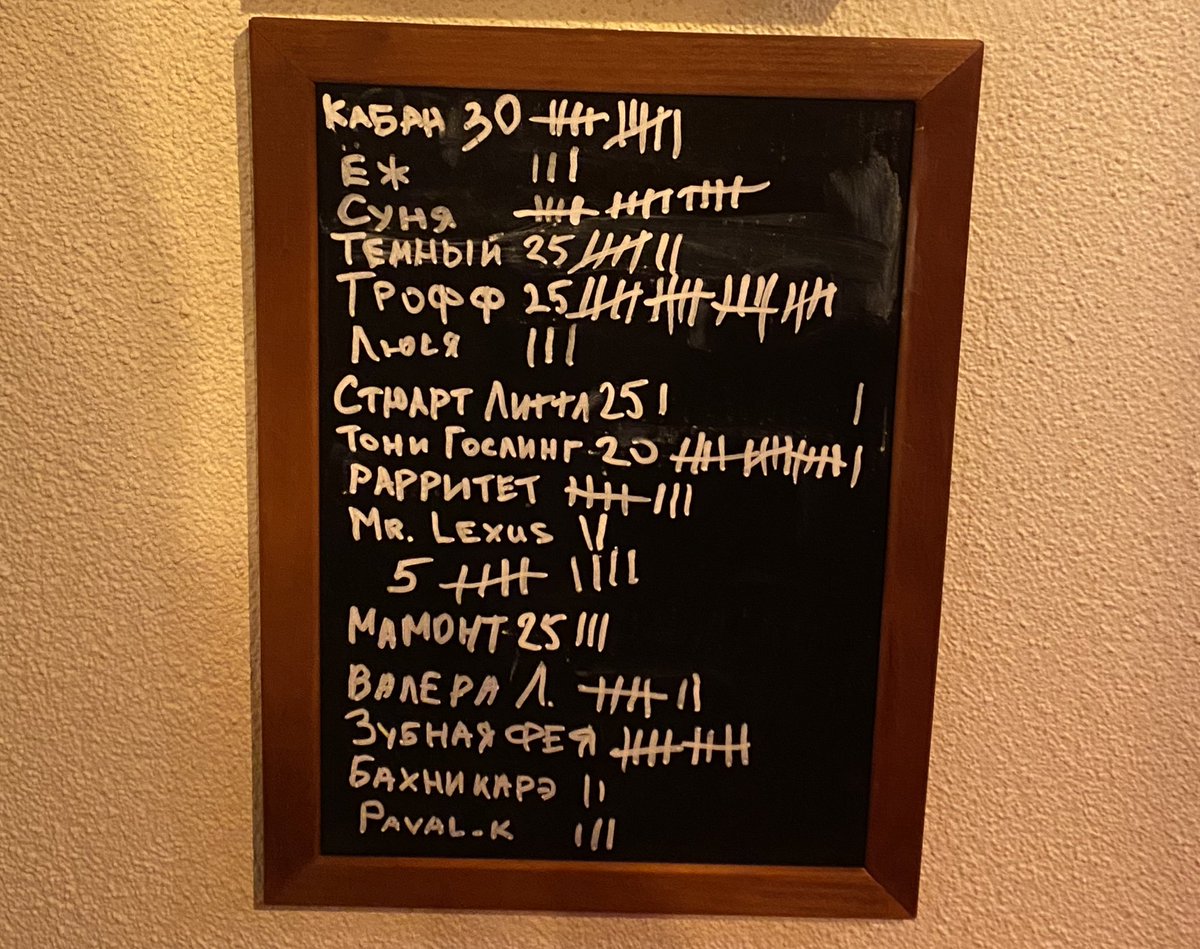 КАБАН 30 卌 卌 |
ЁЖ |||
СУНЯ 卌 卌 卌
ТЕМНЫЙ 25 卌 ||
ТРОФФ 25 卌 卌 卌 卌
ЛЮСЯ |||
СТЮАРТ ЛИТТЛ 25 | |
ТОНИ ГОСЛИНГ 20 卌 卌 卌 |
РАРРИТЕТ 卌 |||
MR. LEXUS ||
5 卌 ||||
МАМОНТ 25 |||
ВАЛЕРА Л. 卌 ||
ЗУБНАЯ ФЕЯ 卌 卌
БАХНИ КАРЭ ||
PAVAL-K |||